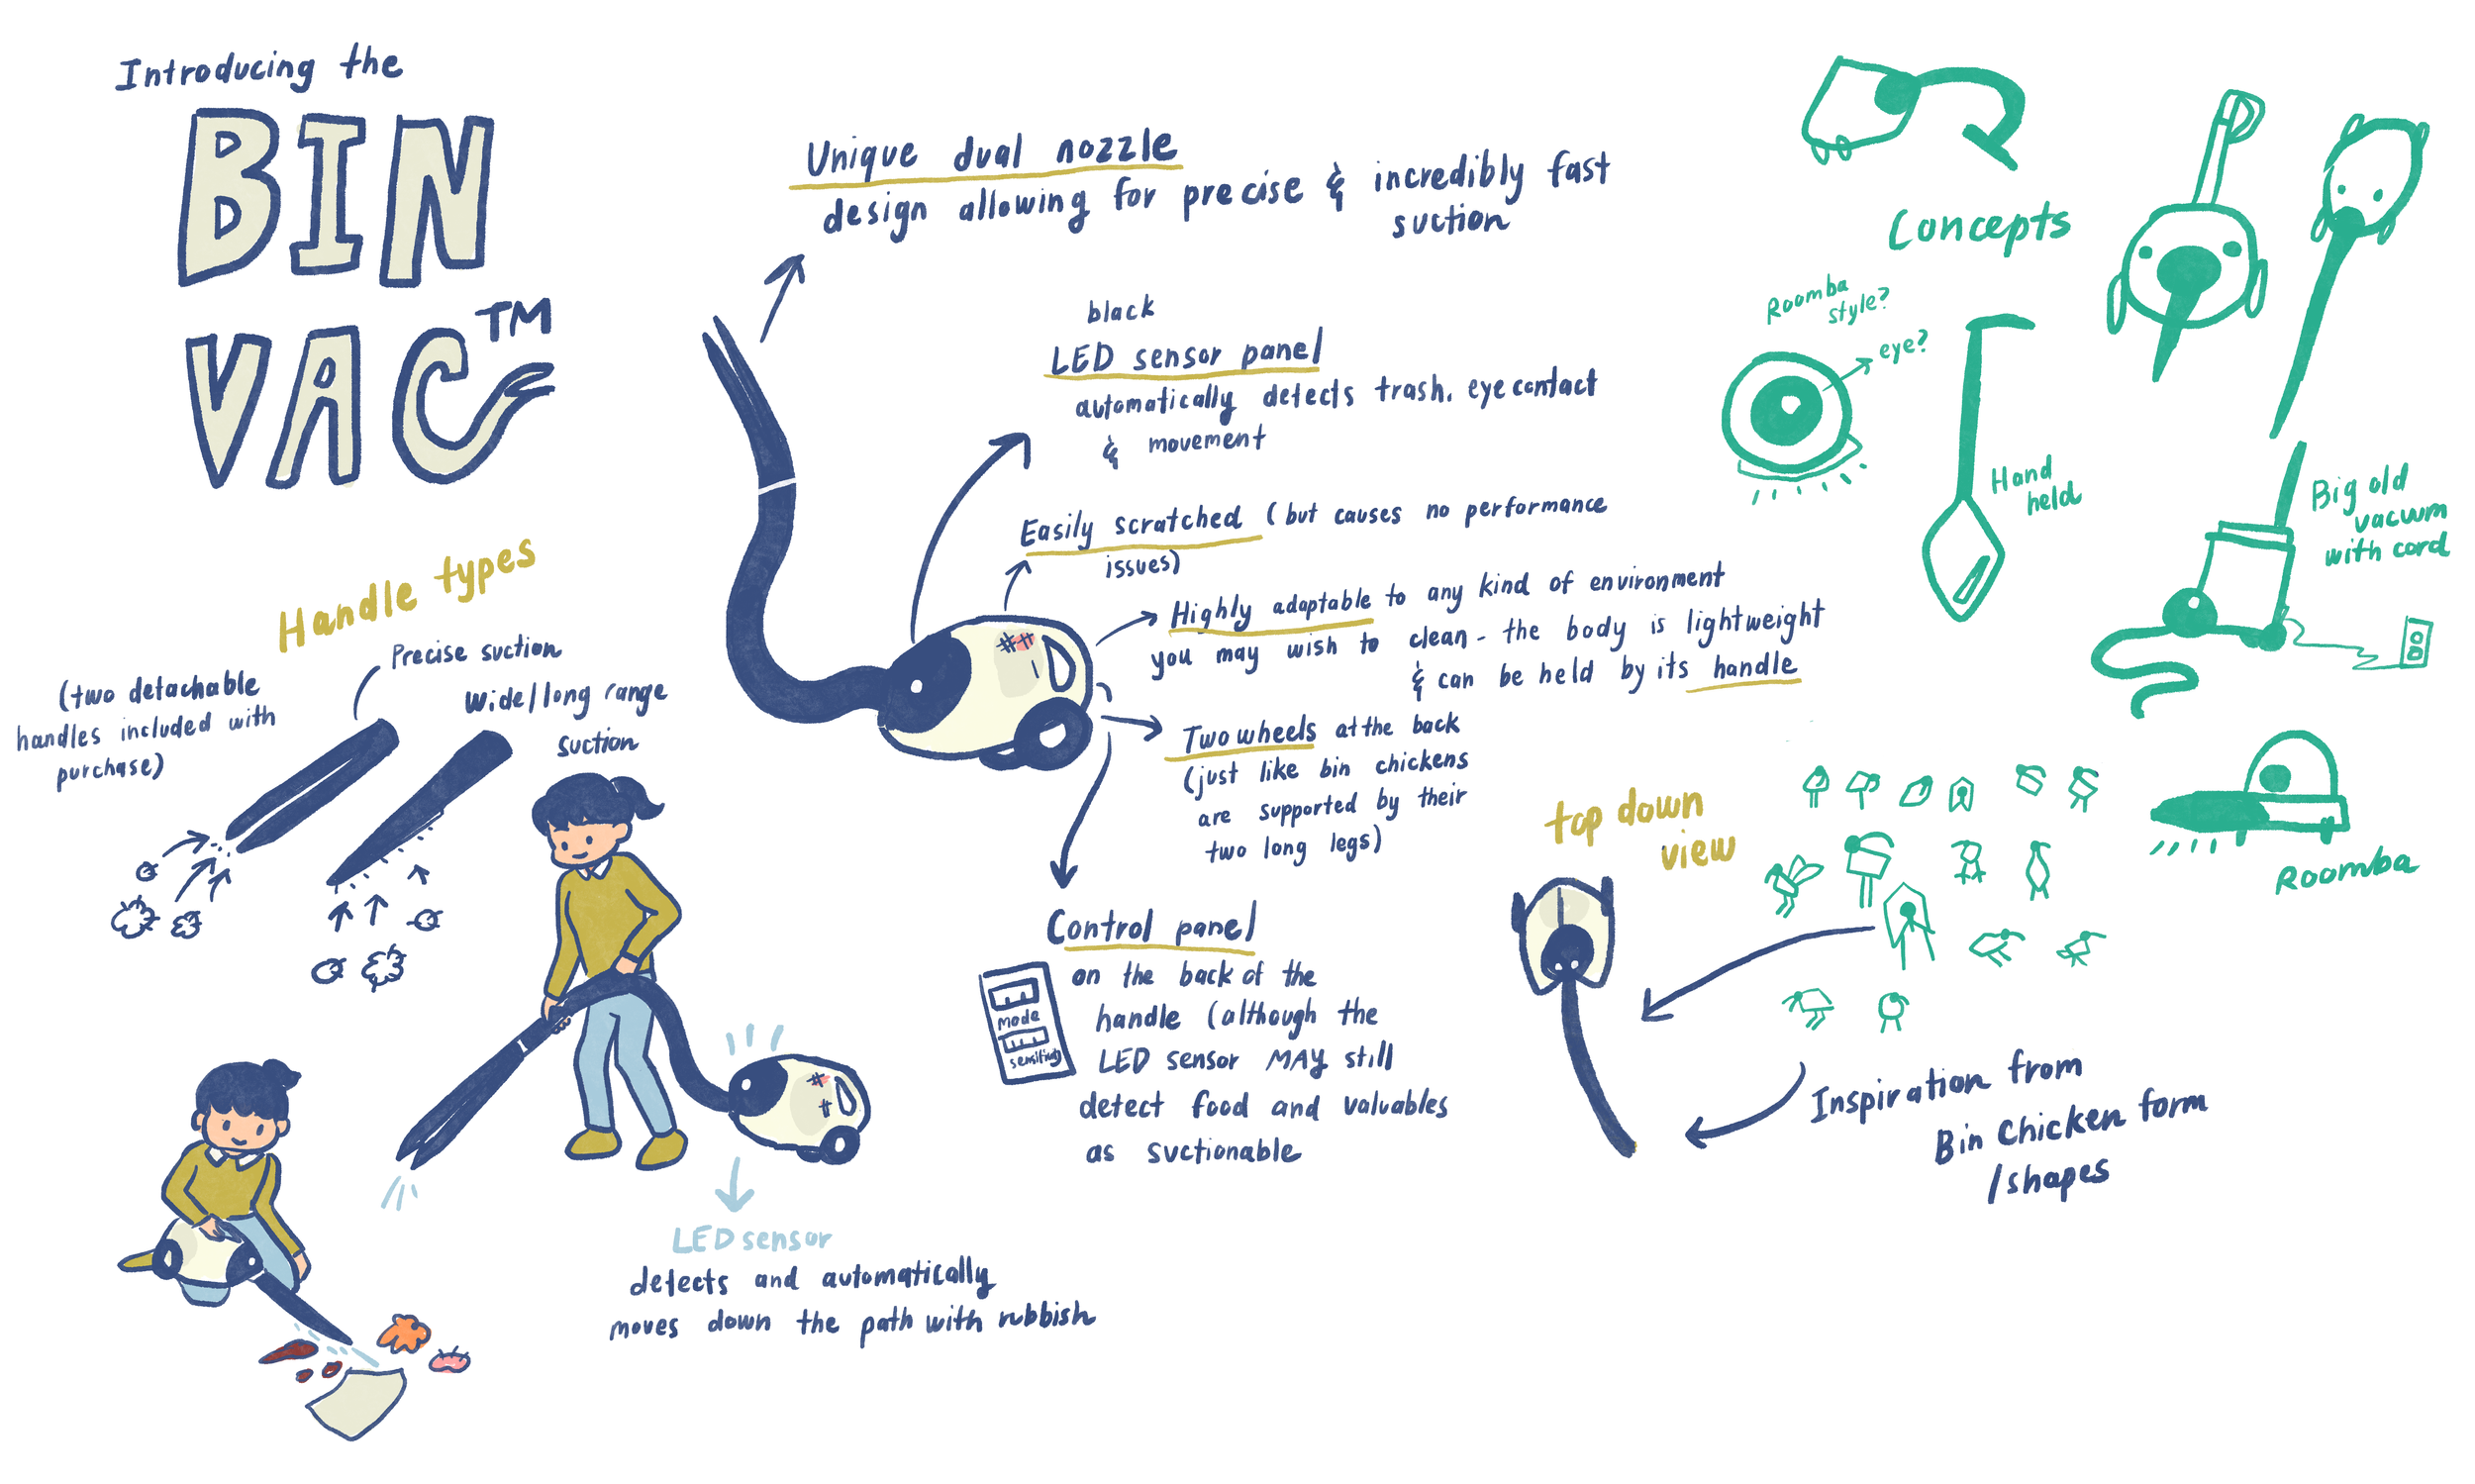 Introducing the
BIN
VAC™
Unique dual nozzle
design allowing for precise & incredibly fast
suction
black
LED sensor panel
automatically detects trash, eye contact
& movement
Easily scratched (but causes no performance
issues)
Highly adaptable to any kind of environment
you may wish to clean - the body is lightweight
& can be held by its handle
Two wheels at the back
(just like bin chickens
are supported by their
two long legs)
Control panel
on the back of the
handle (although the
LED sensor MAY still
detect food and valuables
as suctionable
mode
sensitivity
Handle types
(two detachable
handles included with
purchase)
Precise suction
Wide/long range
suction
LED sensor
detects and automatically
moves down the path with rubbish
Concepts
Roomba
style?
eye?
Hand
held
Big old
vacuum
with cord
Roomba
top down
view
Inspiration from
Bin Chicken form
/shapes